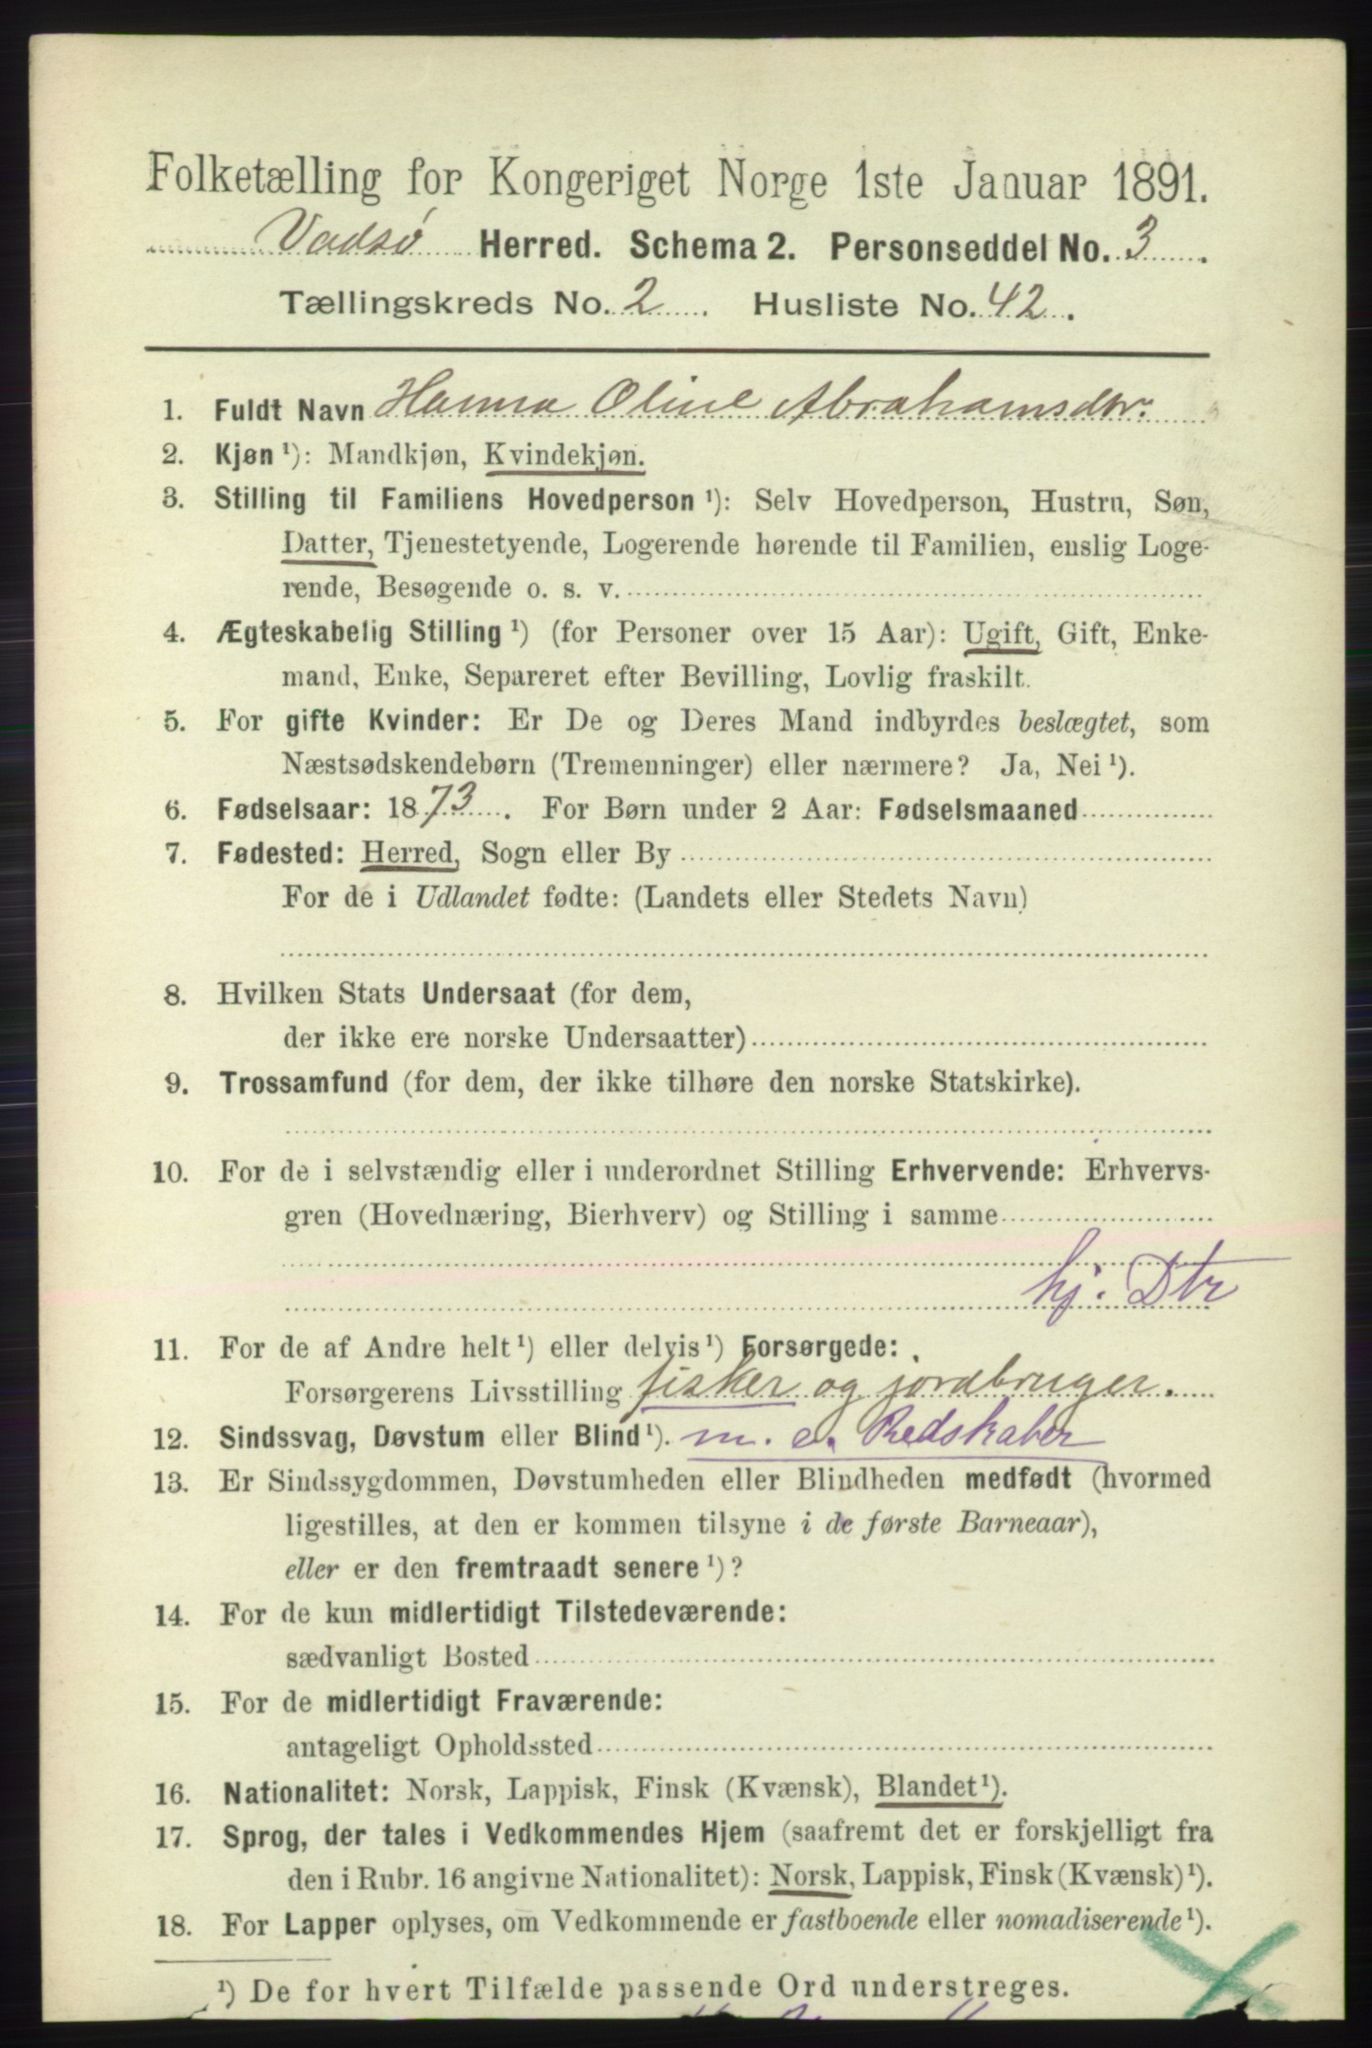 Folketælling for Kongeriget Norge 1ste Januar 1891.
Vadsø Herred. Schema 2. Personseddel No. 3.
Tællingskreds No. 2. Husliste No. 42.
1. Fuldt Navn Hanna Oline Abrahamsdtr.
2. Kjøn ¹): Mandkjøn, Kvindekjøn.
3. Stilling til Familiens Hovedperson ¹): Selv Hovedperson, Hustru, Søn,
Datter, Tjenestetyende, Logerende hørende til Familien, enslig Loge-
rende, Besøgende o. s. v.
4. Ægteskabelig Stilling ¹) (for Personer over 15 Aar): Ugift, Gift, Enke-
mand, Enke, Separeret efter Bevilling, Lovlig fraskilt.
5. For gifte Kvinder: Er De og Deres Mand indbyrdes beslægtet, som
Næstsødskendebørn (Tremenninger) eller nærmere? Ja, Nei ¹).
6. Fødselsaar: 1873. For Børn under 2 Aar: Fødselsmaaned
7. Fødested: Herred, Sogn eller By
For de i Udlandet fødte: (Landets eller Stedets Navn)
8. Hvilken Stats Undersaat (for dem,
der ikke ere norske Undersaatter)
9. Trossamfund (for dem, der ikke tilhøre den norske Statskirke).
10. For de i selvstændig eller i underordnet Stilling Erhvervende: Erhvervs-
gren (Hovednæring, Bierhverv) og Stilling i samme
hj. Dtr
11. For de af Andre helt ¹) eller delvis ¹) Forsørgede:
Forsørgerens Livsstilling fisker og jordbruger.
12. Sindssvag, Døvstum eller Blind ¹). m. e. Redskaber
13. Er Sindssygdommen, Døvstumheden eller Blindheden medfødt (hvormed
ligestilles, at den er kommen tilsyne i de første Barneaar),
eller er den fremtraadt senere ¹)?
14. For de kun midlertidigt Tilstedeværende:
sædvanligt Bosted
15. For de midlertidigt Fraværende:
antageligt Opholdssted
16. Nationalitet: Norsk, Lappisk, Finsk (Kvænsk), Blandet ¹).
17. Sprog, der tales i Vedkommendes Hjem (saafremt det er forskjelligt fra
den i Rubr. 16 angivne Nationalitet): Norsk, Lappisk, Finsk (Kvænsk) ¹).
18. For Lapper oplyses, om Vedkommende er fastboende eller nomadiserende ¹).
¹) De for hvert Tilfælde passende Ord understreges.